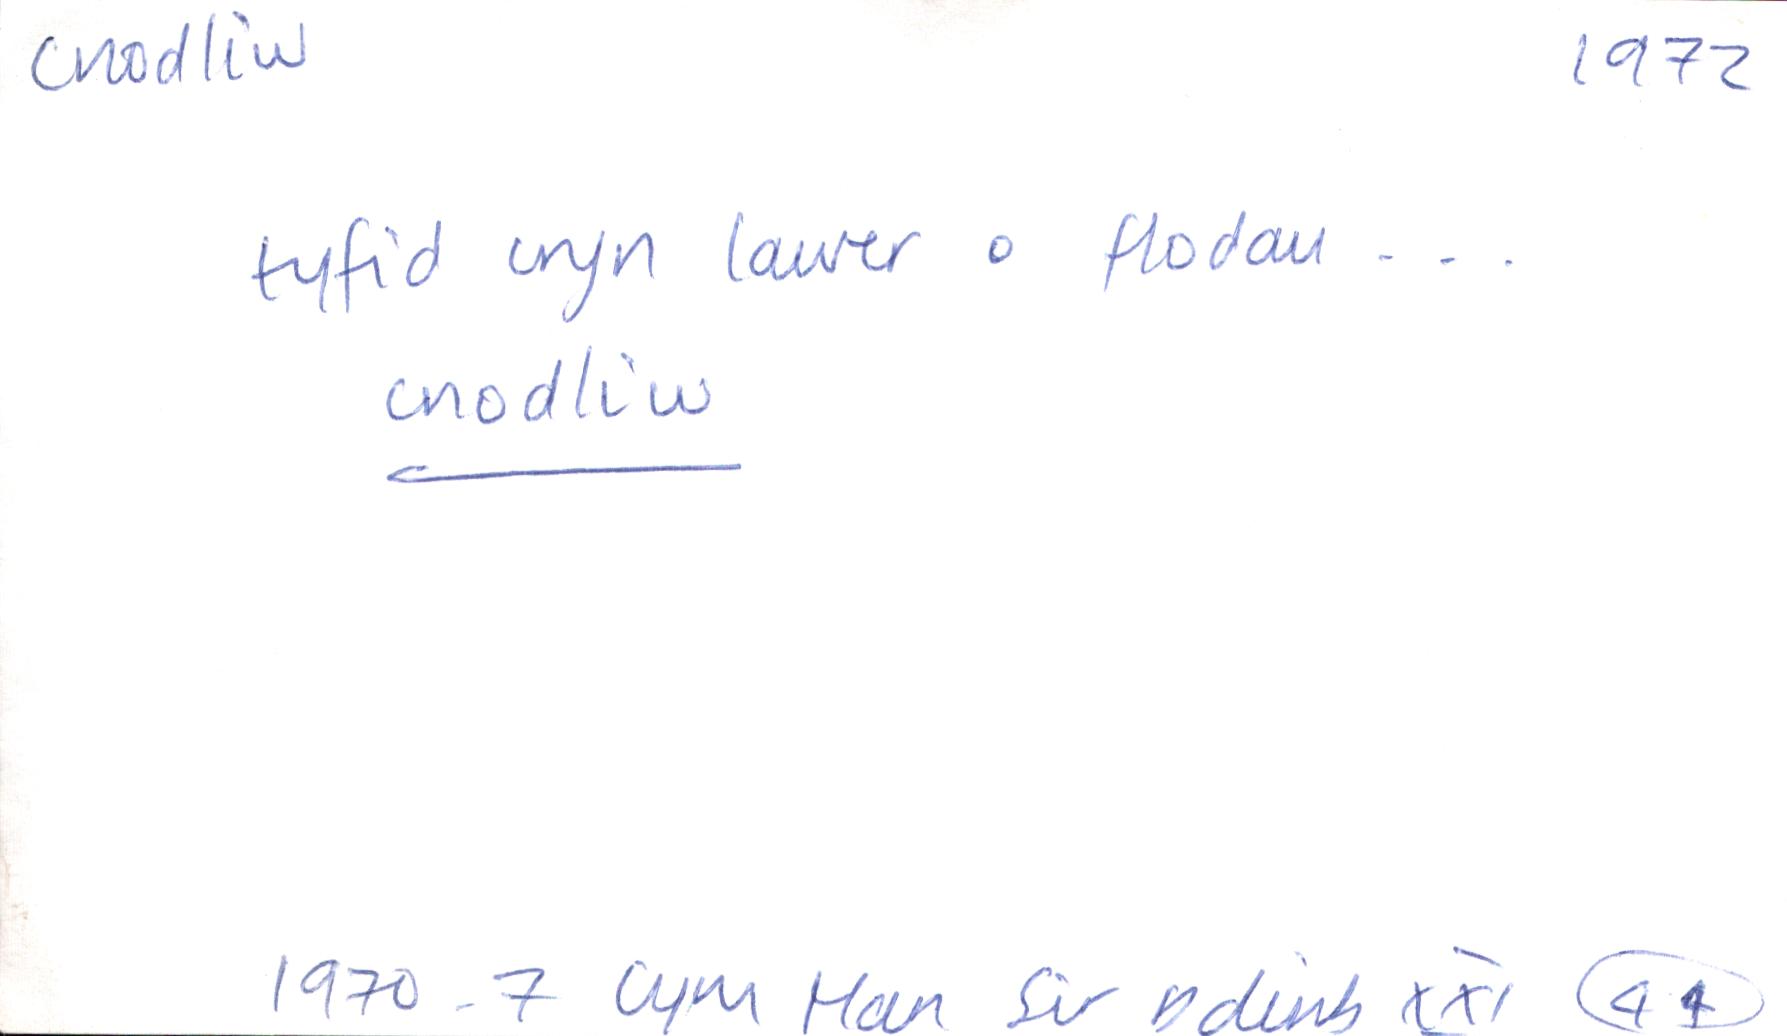 cnodliw 1972
tyfid cryn lawer o flodau ...
cnodliw
1970-7 Cym Han Sir Ddinb xxi 41